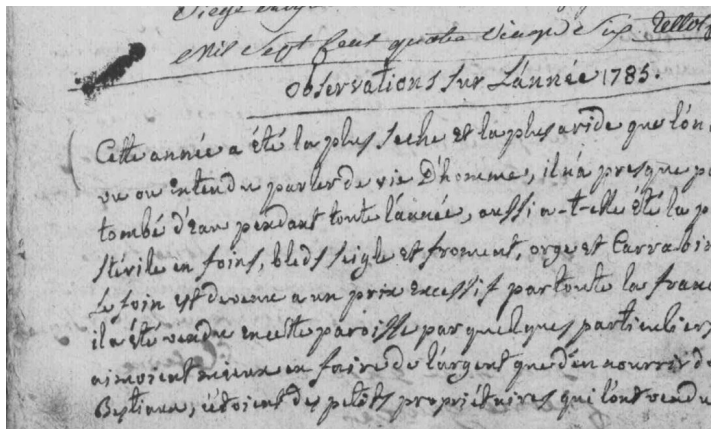 Siège
Mil Sept Cent quatre Vingt Six. Tellot
Observations sur L'année 1785.
Cette année a été la plus seche et la plus aride que l'on
vu ou entendu parler de vie D'homme, il n'a presque p
tombé d'Eau pendant toute l'année, aussi a-t-elle été la p
stérile en foins, bleds seigle et froment, orge et Carrabin
Le foin est devenu a un prix excessif partoute la franc
il a été vendu en cette paroisse par quelques particuliers
aimoient mieux en faire de l'argent que d'en nourrir de
Bestiaux, c'étoient des petits propriétaires qui l'ont vendu